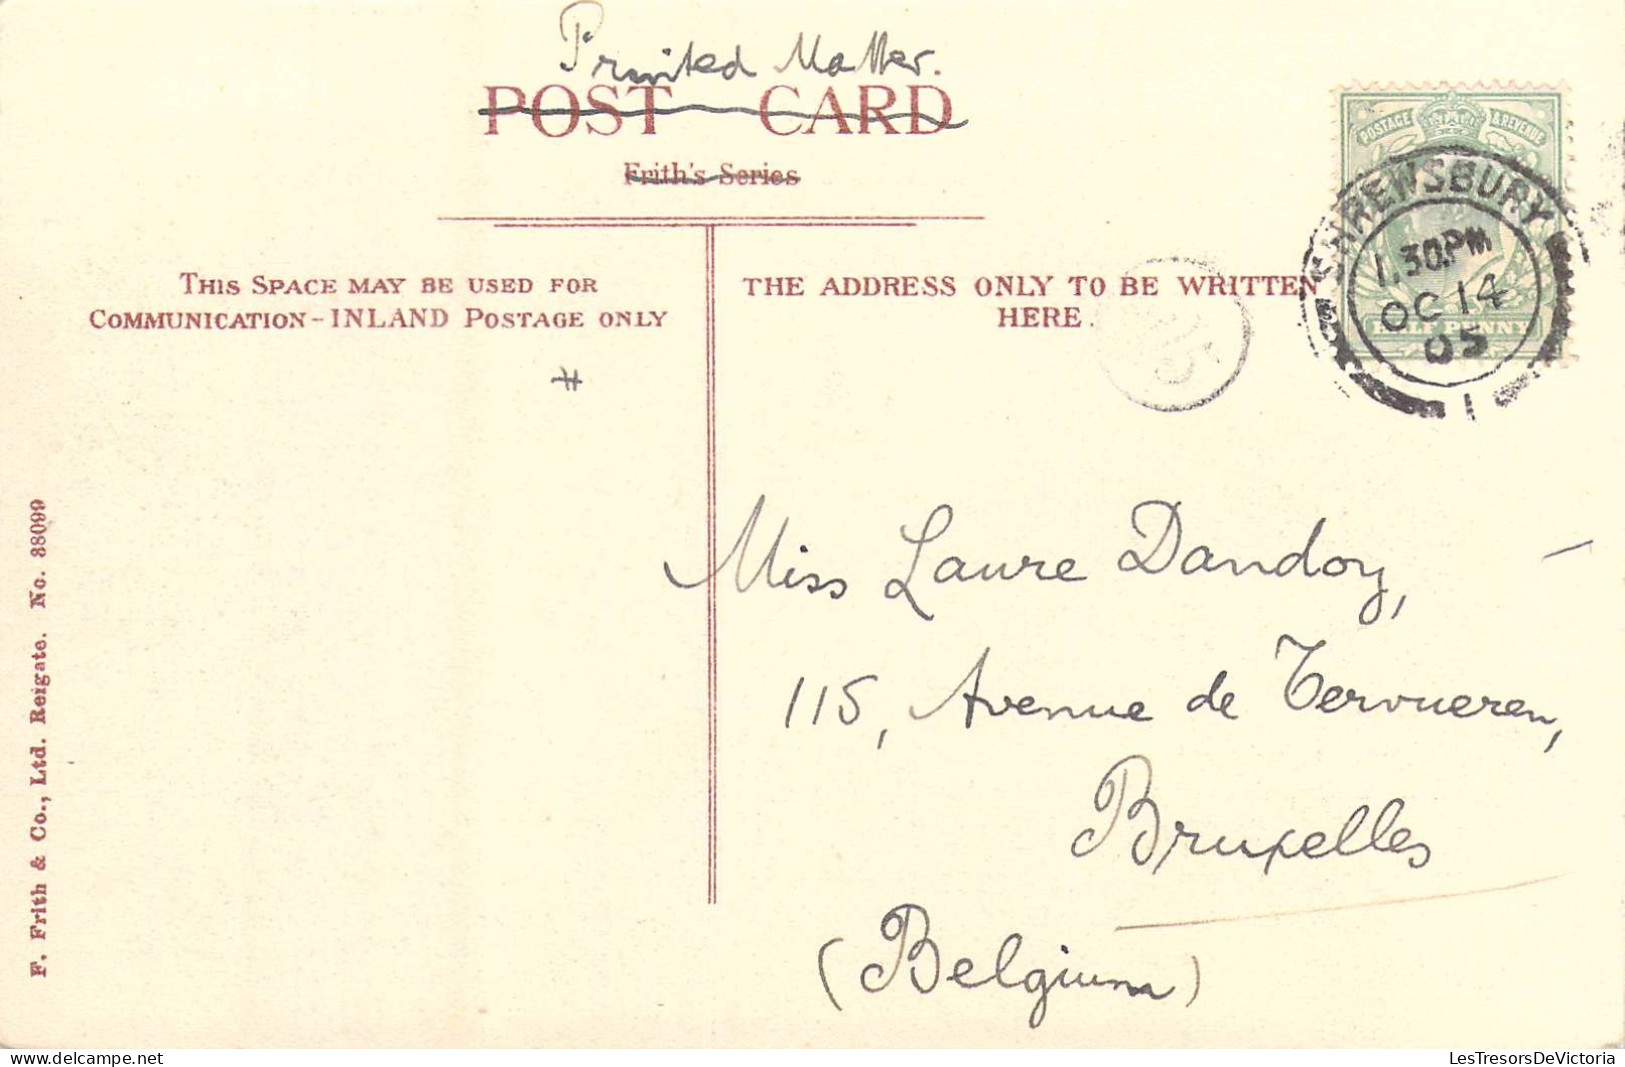 Printed Matter.
POST CARD
Frith's Series
POSTAGE & REVENUE
SHREWSBURY
1.30PM
OC 14
05
1
HALF PENNY
THIS SPACE MAY BE USED FOR
COMMUNICATION-INLAND POSTAGE ONLY
THE ADDRESS ONLY TO BE WRITTEN
HERE.
Miss Laure Dandoy,
115, Avenue de Tervueren,
Bruxelles
(Belgium)
F. Frith & Co., Ltd. Reigate. No. 38099
LesTresorsDeVictoria